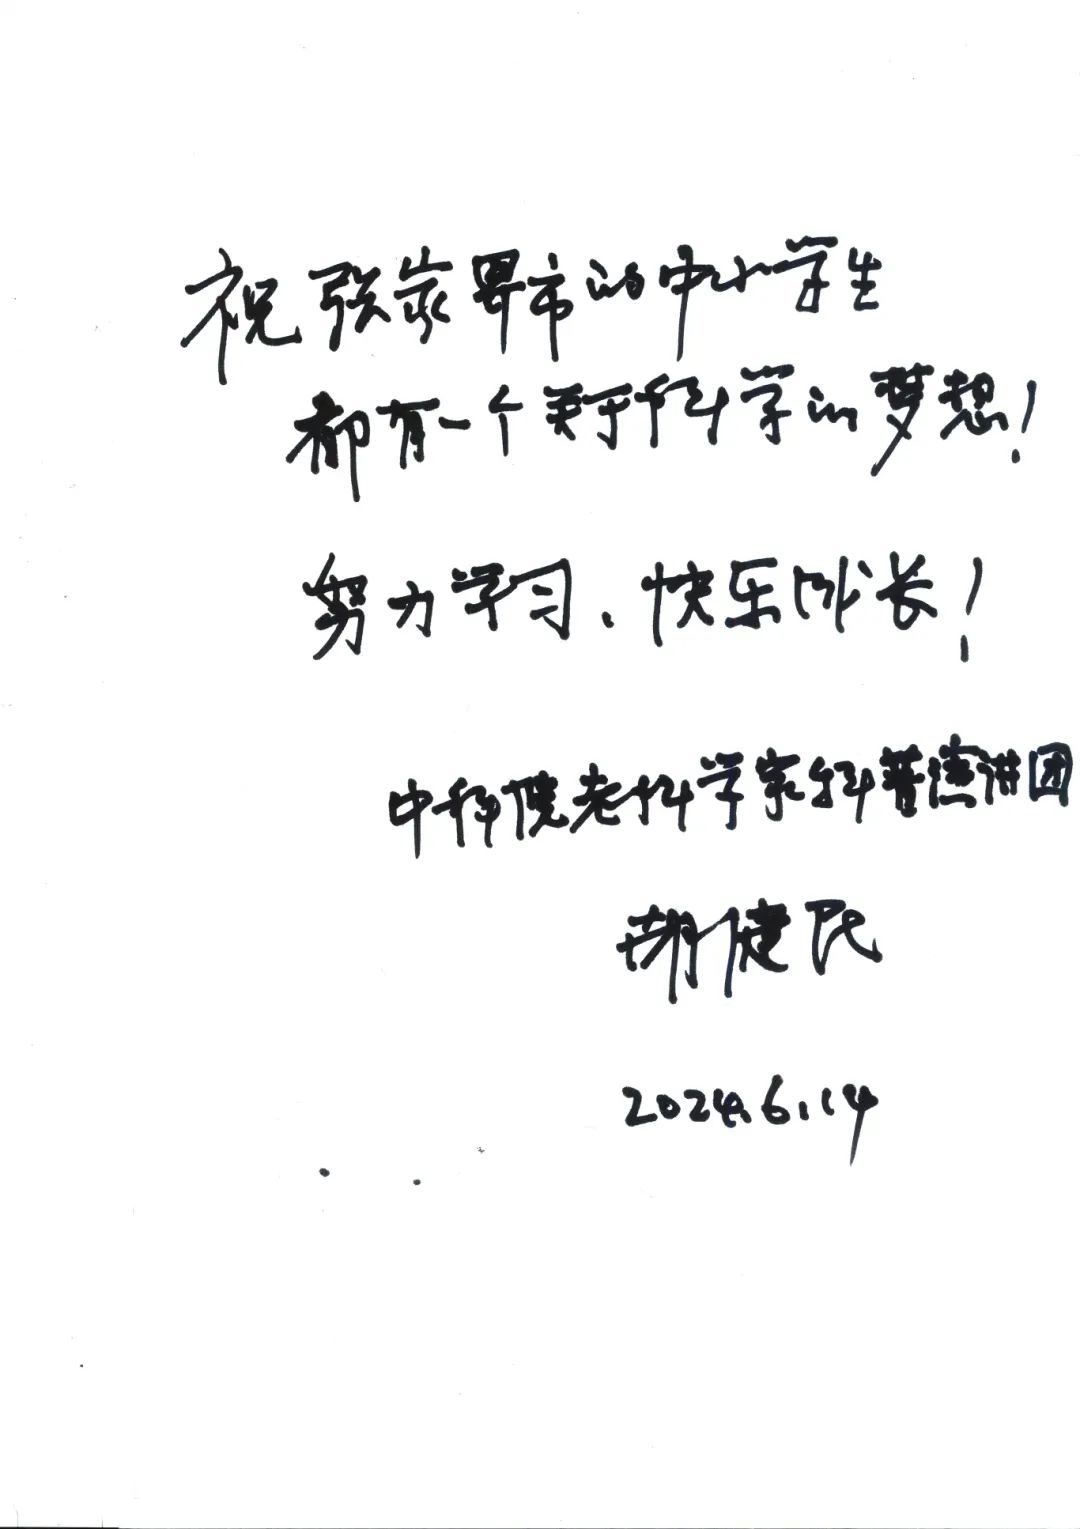 祝张家界市的中小学生
都有一个关于科学的梦想!
努力学习、快乐成长!
中科院老科学家科普演讲团
胡健民
2024.6.14